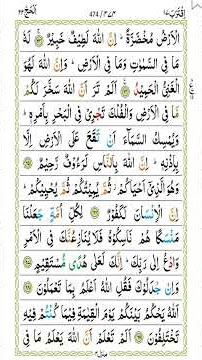 اِقْتَرَبَ ١٧
الْحَجّ ٢٢
الْاَرْضُ مُخْضَرَّةً ؕ اِنَّ اللّٰهَ لَطِيْفٌ خَبِيْرٌ ﴿٦٣﴾ لَهٗ
مَا فِي السَّمٰوٰتِ وَمَا فِي الْاَرْضِ ؕ وَاِنَّ اللّٰهَ لَهُوَ
الْغَنِيُّ الْحَمِيْدُ ﴿٦٤﴾ اَلَمْ تَرَ اَنَّ اللّٰهَ سَخَّرَ لَكُمْ
مَّا فِي الْاَرْضِ وَالْفُلْكَ تَجْرِيْ فِي الْبَحْرِ بِاَمْرِهٖ ؕ
وَيُمْسِكُ السَّمَآءَ اَنْ تَقَعَ عَلَى الْاَرْضِ اِلَّا
بِاِذْنِهٖ ؕ اِنَّ اللّٰهَ بِالنَّاسِ لَرَءُوْفٌ رَّحِيْمٌ ﴿٦٥﴾
وَهُوَ الَّذِيْٓ اَحْيَاكُمْ ؗ ثُمَّ يُمِيْتُكُمْ ثُمَّ يُحْيِيْكُمْ ؕ
اِنَّ الْاِنْسَانَ لَكَفُوْرٌ ﴿٦٦﴾ لِكُلِّ اُمَّةٍ جَعَلْنَا
مَنْسَكًا هُمْ نَاسِكُوْهُ فَلَا يُنَازِعُنَّكَ فِي الْاَمْرِ
وَادْعُ اِلٰى رَبِّكَ ؕ اِنَّكَ لَعَلٰى هُدًى مُّسْتَقِيْمٍ ﴿٦٧﴾
وَاِنْ جٰدَلُوْكَ فَقُلِ اللّٰهُ اَعْلَمُ بِمَا تَعْمَلُوْنَ ﴿٦٨﴾
اَللّٰهُ يَحْكُمُ بَيْنَكُمْ يَوْمَ الْقِيٰمَةِ فِيْمَا كُنْتُمْ فِيْهِ
تَخْتَلِفُوْنَ ﴿٦٩﴾ اَلَمْ تَعْلَمْ اَنَّ اللّٰهَ يَعْلَمُ مَا فِي
منزل ٤